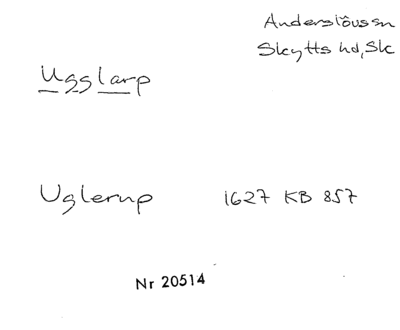 Anderslövs sn
Skytts hd, Sk
Ugglarp
Uglerup 1627 KB 857
Nr 20514